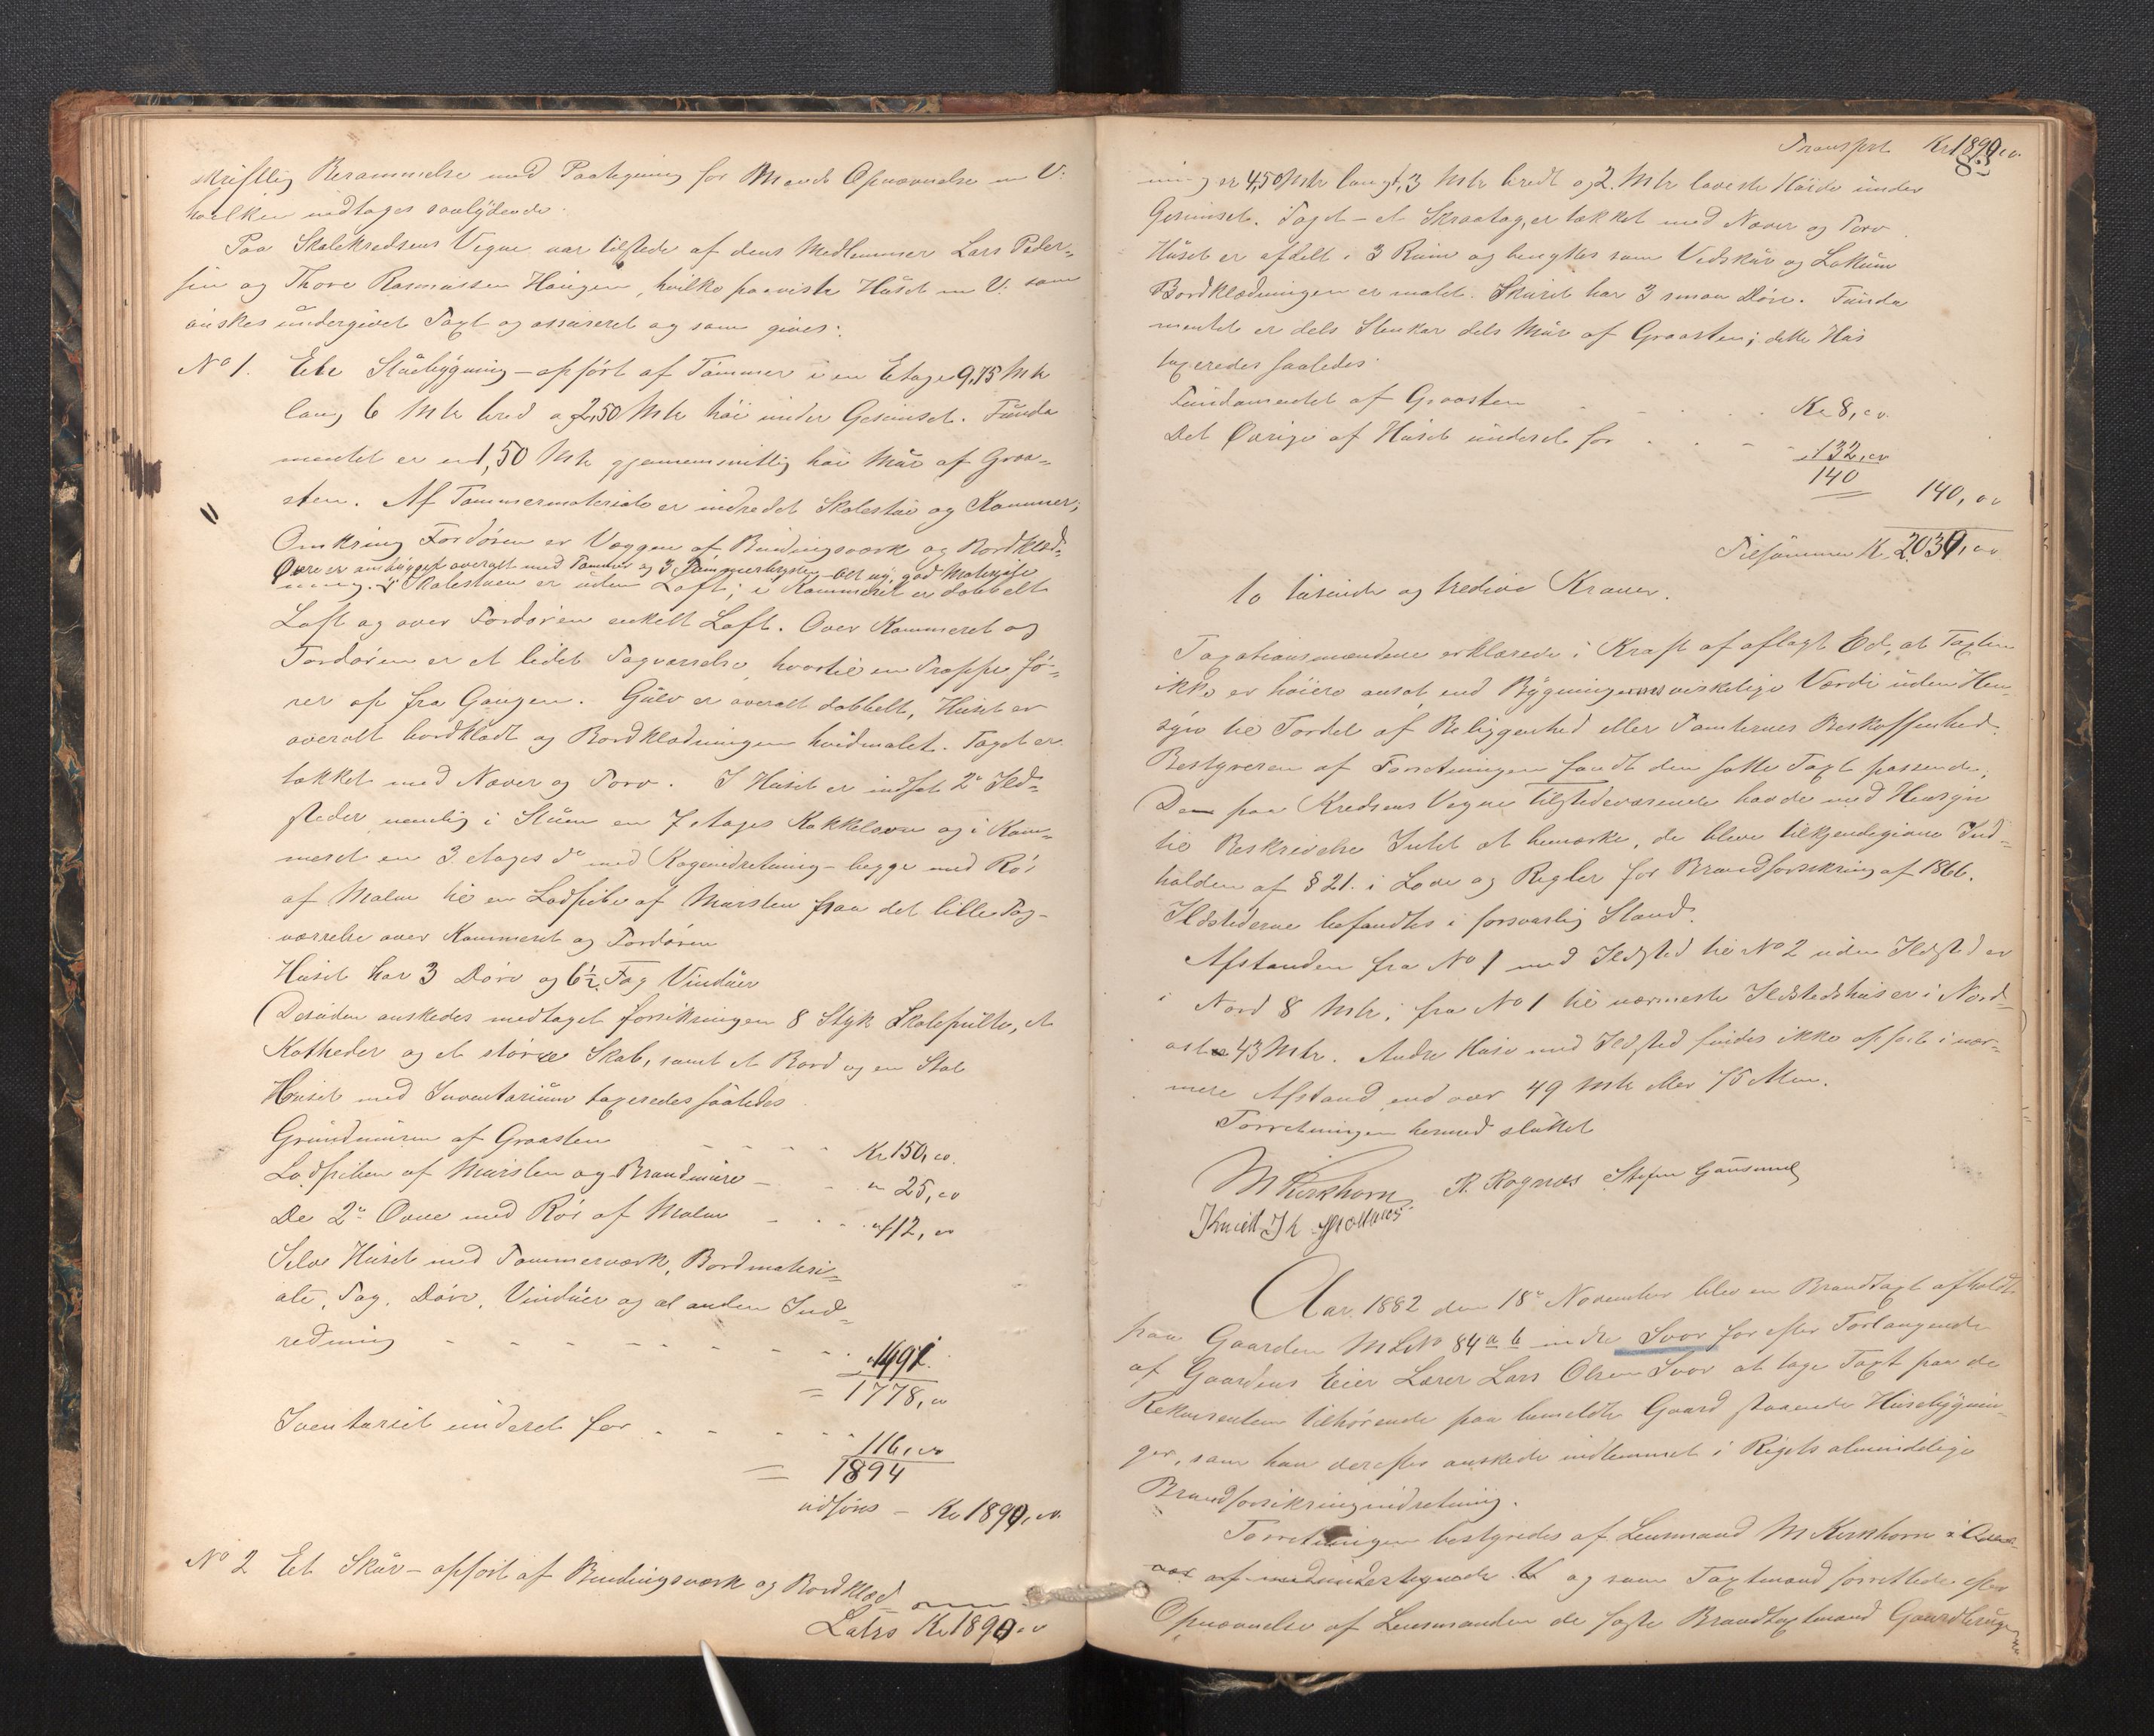 skriftlig Berammelse med Paategning for Mænds Opnævnelse m V.
hvilken indtages saalydende.
Paa Skolekredsens Vegne var tilstede af dens Medlemmer Lars Peder-
sen og Thore Rasmussen Haugen, hvilke paaviste Huset m V. som
önskes undergivet Taxt og assureret og som gives:
No 1. Ete Stuebygning – opfört af Tømmer i en Etage 9,75 Mtr
lang 6 Mtr bred og 2,50 Mtr höi under Gesimset. Funda
mentet er en 1,50 Mtr gjennemsnitlig höi Mur af Graa-
sten. Af Tømmermateriale er indredet Skolestue og Kammer;
Omkring Fordören er Væggen af Bindingsværk og Bordklæd-
ning. I Skolestuen er uden Loft; i Kammeret er dobbelt
Loft og over Fordören enkelt Loft. Over Kammeret og
Fordören er et lidet Tagværelse, hvortil en Trappe fö-
rer op fra Gangen. Gulv er overalt dobbelt, Huset er
overalt bordklædt og Bordklædningen hvidmalet. Taget er
tækket med Næver og Torv. I Huset er indsat 2de Ild-
steder nemlig i Stuen en 7 etages Kakkelovn og i Kam-
meret en 3 etages do med Kogeindretning – begge med Rör
af Malm til en Ladpibe af Mursten fraa det lille Tag-
værelse over Kammeret og Fordören
Huset har 3 Döre og 6½ Fag Vinduer
Desuden önskedes medtaget forsikringen 8 Styk Skolepulte, et
Katheder og et större Skab, samt et Bord og en Stol
Huset med Inventarium taxeredes saaledes
Grundmuren af Graasten - - - - Kr 150,00.
Ladpiben af Mursten og Brandmure - - " 25,00
De 2de Ovne med Rör af Malm - - - " 112,00
Selve Huset med Tømmerværk, Bordmateri-
ale, Tag, Döre, Vinduer og al anden Ind-
redning - - - - - - - - 1491.
= 1778,00
Inventariet vurderet for - - - - - 116,00
= 1894
udföres – Kr 1890,00.
No 2 Et Skur – opfört af Bindingsværk og Bordklæd
Latrs Kr 1890,00
Transport Kr 1890,00.
83
ning er 4,50 Mtr langt, 3 Mtr bredt og 2 Mtr laveste Höide under
Gesimset. Taget – et Skraatag, er tækket med Næver og Torv.
Huset er afdelt i 3 Rum og benyttes som Vedskur og Lokum
Bordklædningen er malet. Skuret har 3 smaa Döre. Funda
mentet er dels Stenkar dels Mur af Graasten; dette Hus
taxeredes saaledes:
Fundamentet af Graasten - - - - Kr 8,00.
Det Övrige af Huset vurderet for - - - - 132,00
140 140,00
Tilsammen Kr 2030,00
to tusinde og tredive Kroner.
Taxationsmændene erklærede i Kraft af aflagt Ed, at Taxten
ikke er höiere ansat, end Bygningernes virkelige Værdi uden Hen-
syn til Fordel af Beliggenhed eller Tomternes Beskaffenhed.
Bestyreren af Forretningen fandt den satte Taxt passende,
De paa Kredsens Vegne tilstedeværende havde med Hensyn
til Beskrivelse Intet at bemærke, de bleve tilkjendegivne Ind-
holden af § 21. i Love og Regler for Brandforsikring af 1866.
Ildstederne befandtes i forsvarlig Stand.
Afstanden fra No 1 med Ildsted til No 2 uden Ildsted er
i Nord 8 Mtr, fra No 1 til nærmeste Ildstedshus er i Nord-
ost 43 Mtr. Andre Huse med Ildsted findes ikke opfört i nær-
mere Afstand end over 49 Mtr eller 75 Alen.
Forretningen hermed sluttet
M Kirkhorn R. Rognæs Stefen
Knud
Aar 1882 den 18de November blev en Brandtaxt afholdt
paa Gaarden M L No 84 a b indre Svor for efter Forlangende
af Gaardens Eier Lærer Lars Olsen Svor at tage Taxt paa de
Rekvirenten tilhörende paa bemeldte Gaard staaende Husebygnin-
ger, som han derefter önskede indlemmet i Rigets almindelige
Brandforsikringsindretning.
Forretningen bestyredes af Lensmand M Kirkhorn
og som Taxtmænd forrettede efter
Opnævnelse af Lensmanden de faste Brandtaxtmænd Gaardbruger